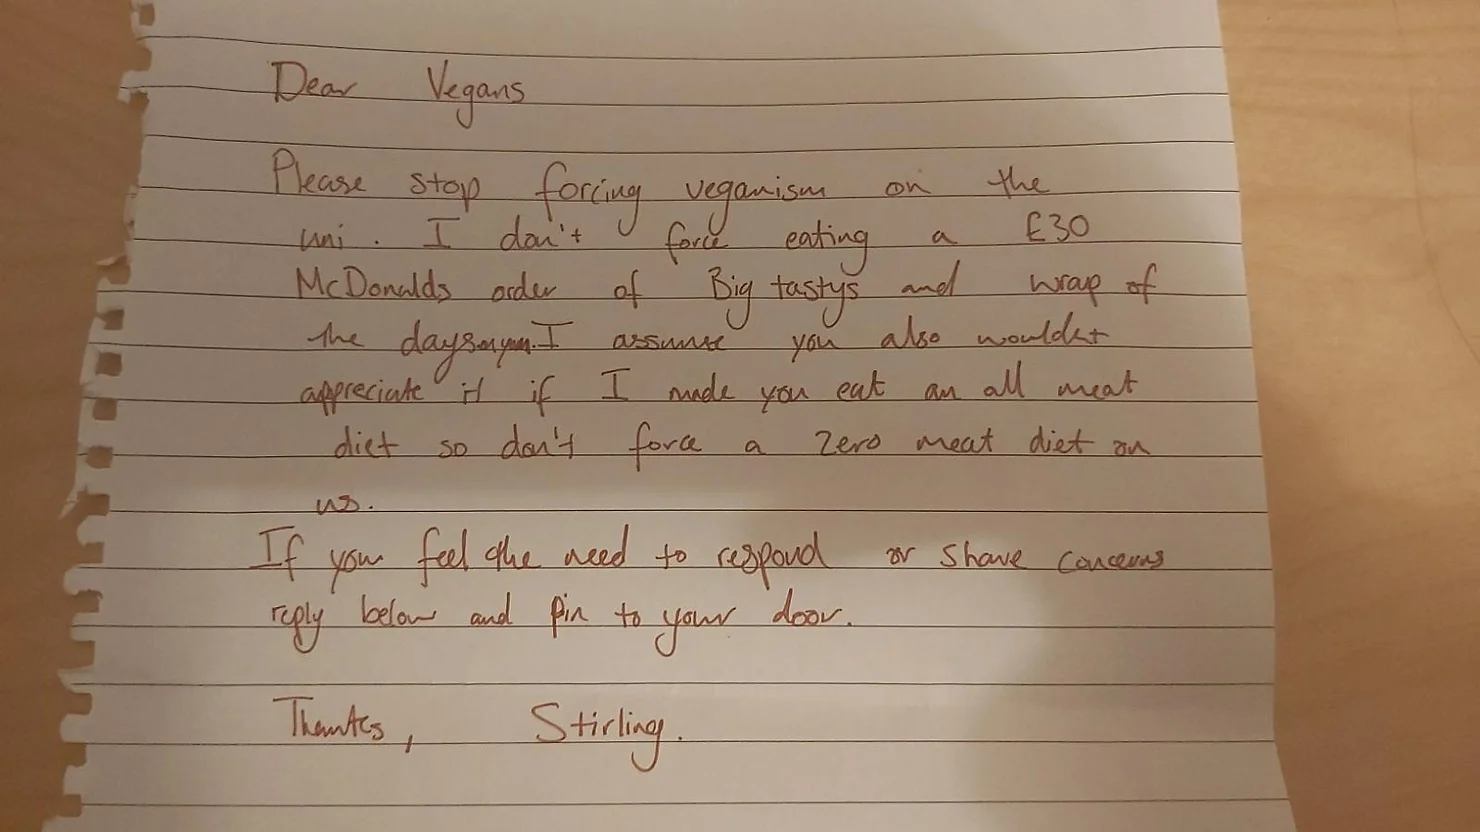 Dear Vegans
Please stop forcing veganism on the
uni. I don't force eating a £30
McDonalds order of Big tastys and wrap of
the days I assume you also wouldnt
appreciate it if I made you eat an all meat
diet so don't force a zero meat diet on
us.
If you feel the need to respond or share concerns
reply below and pin to your door.
Thanks, Stirling.